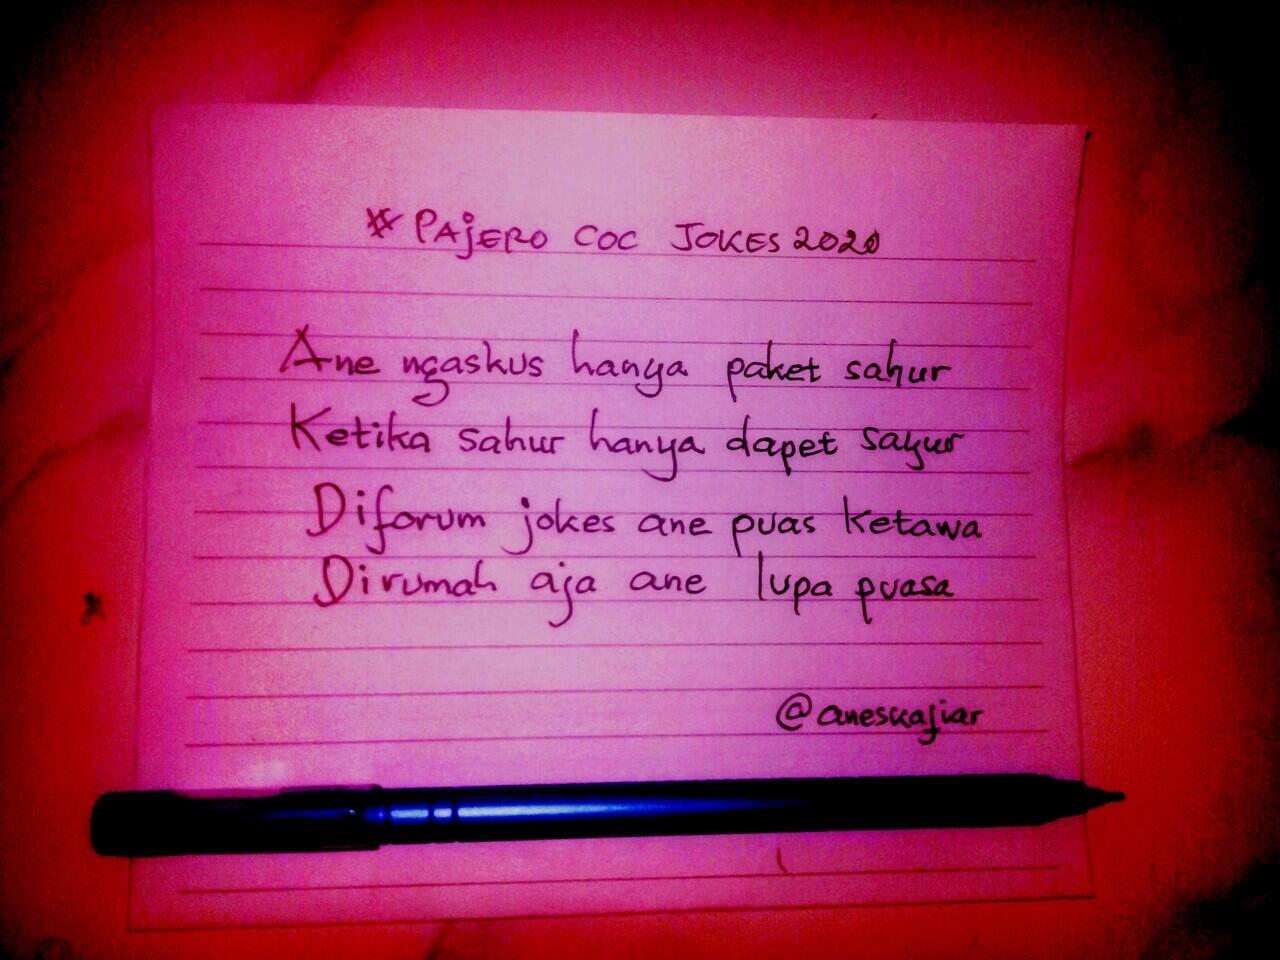 # PAJERO COC JOKES 2020
Ane ngaskus hanya paket sahur
Ketika sahur hanya dapet sayur
Diforum jokes ane puas ketawa
Dirumah aja ane lupa puasa
@aneskafiar